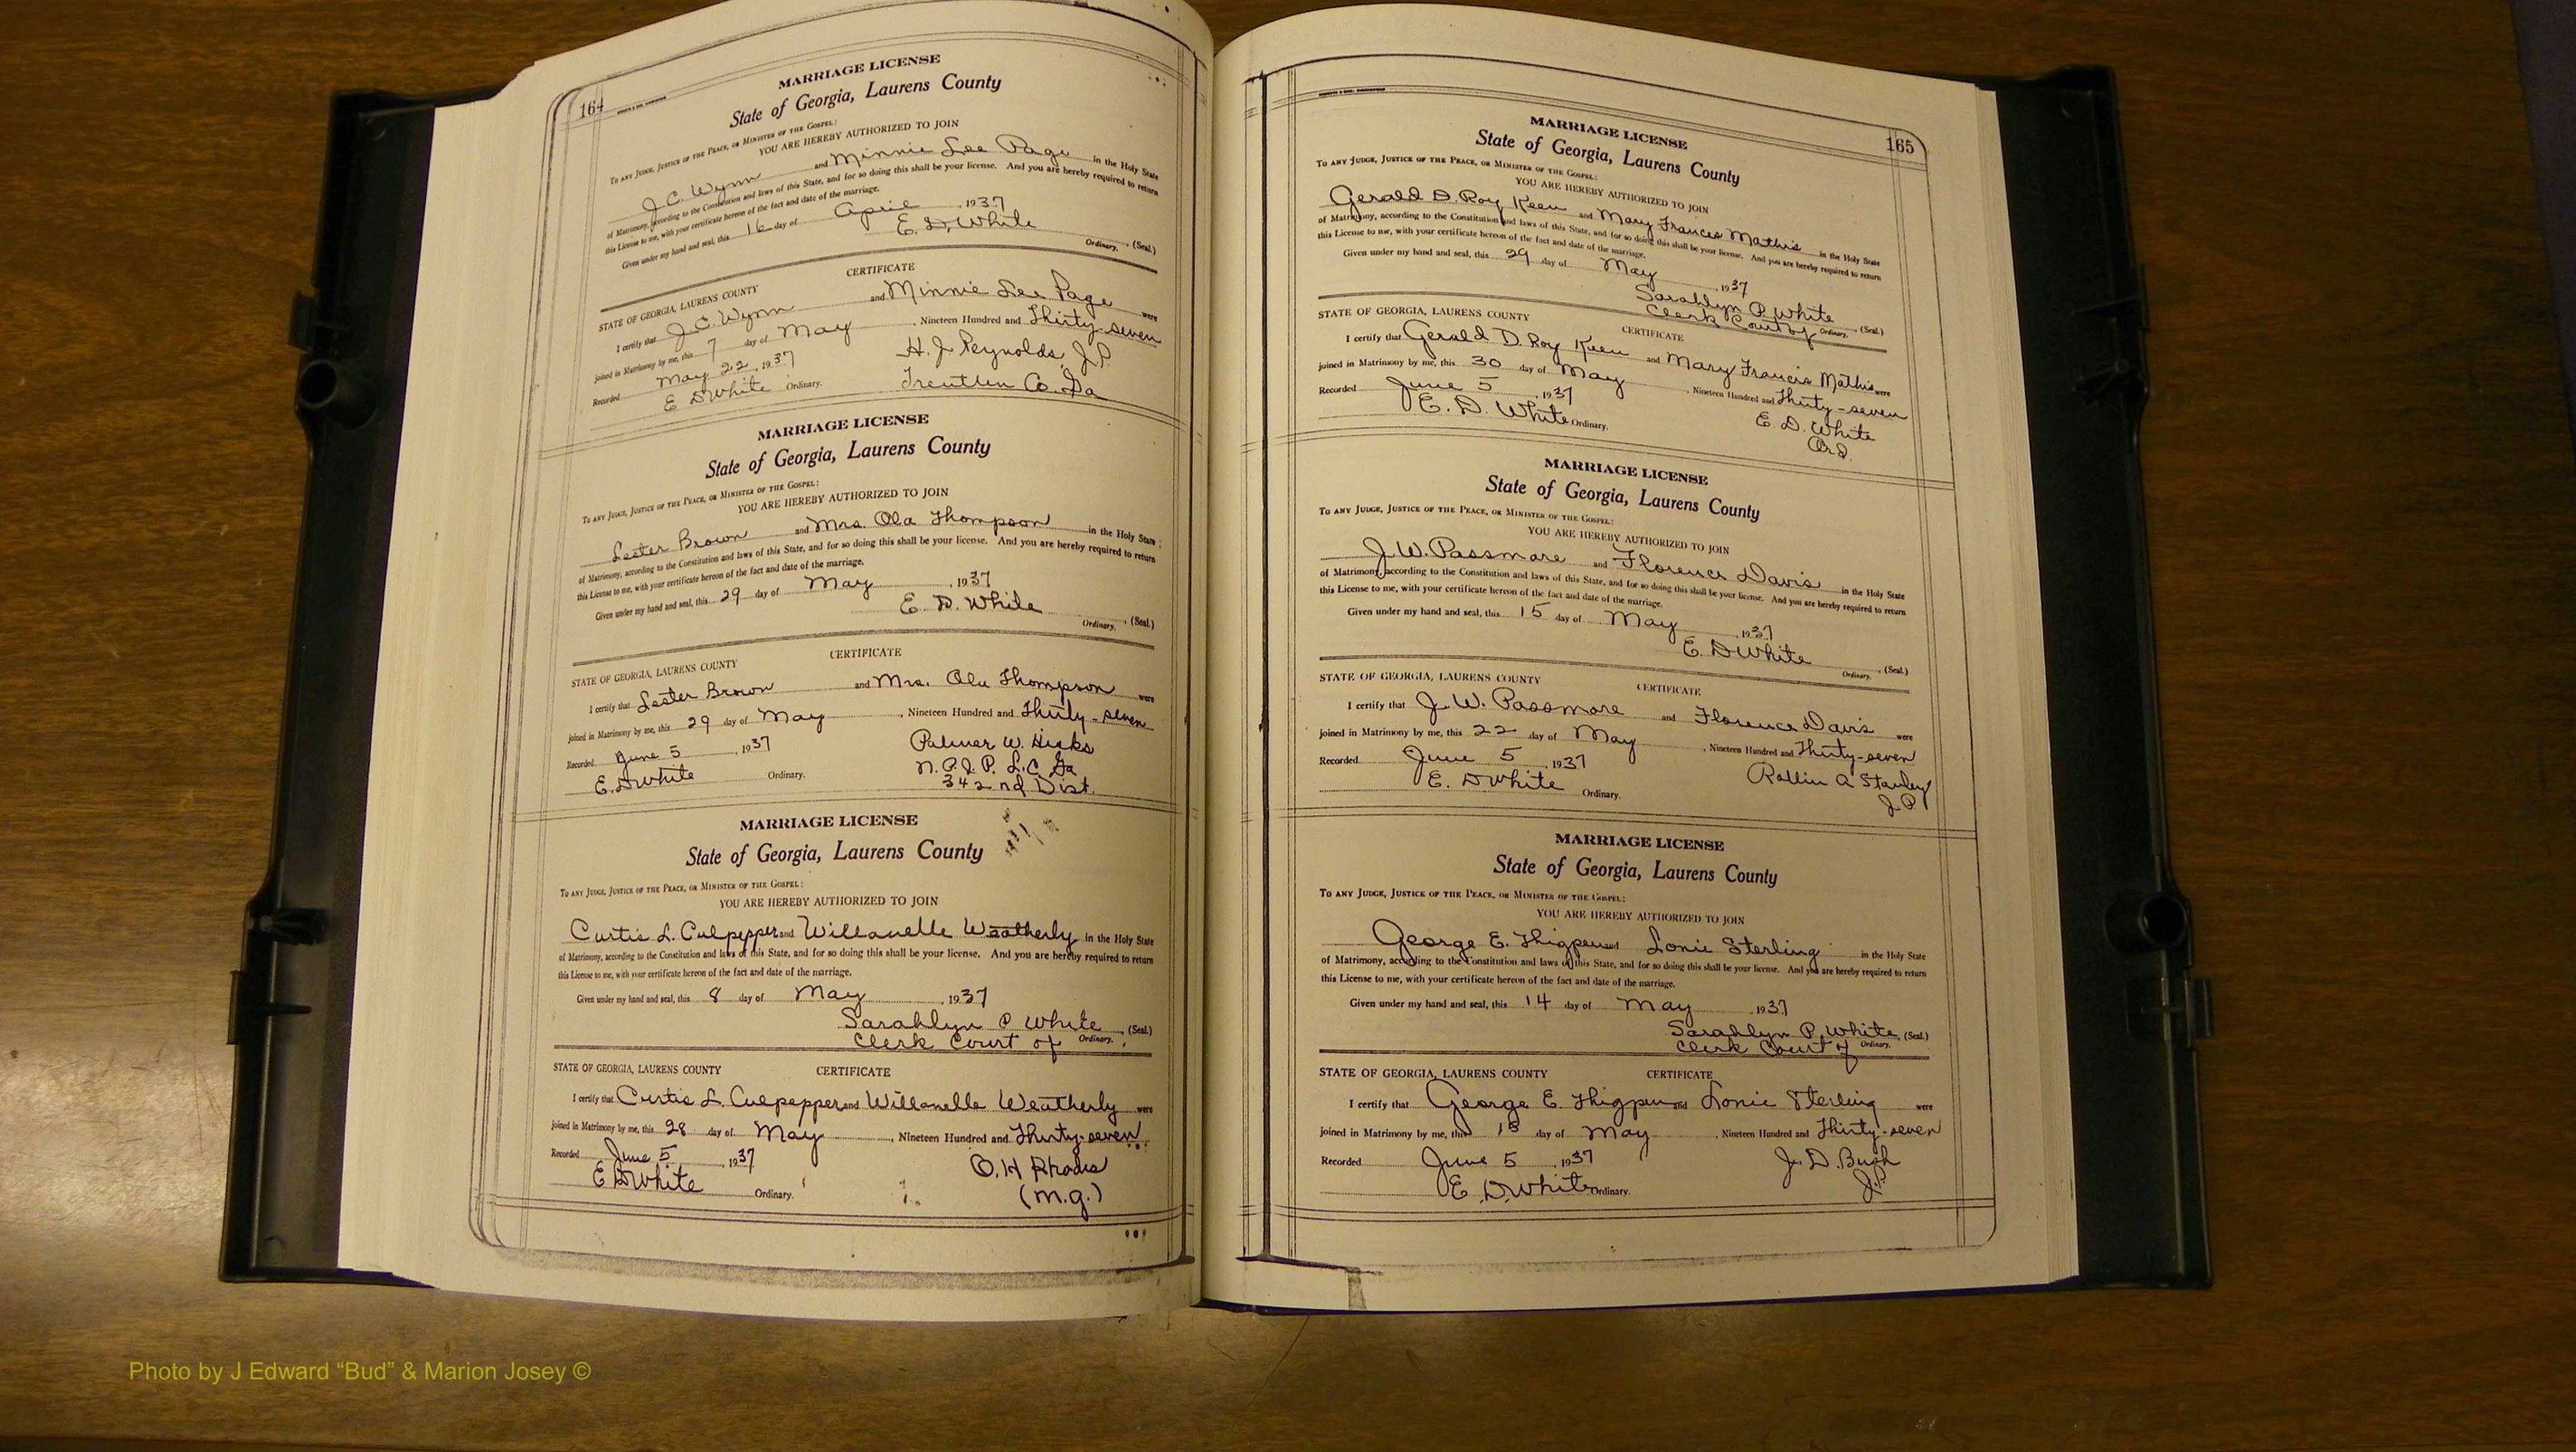 164
MARRIAGE LICENSE
State of Georgia, Laurens County
To any Judge, Justice of the Peace, or Minister of the Gospel:
YOU ARE HEREBY AUTHORIZED TO JOIN
J. C. Wynn and Minnie Lee Page in the Holy State
of Matrimony, according to the Constitution and laws of this State, and for so doing this shall be your license. And you are hereby required to return
this License to me, with your certificate hereon of the fact and date of the marriage.
Given under my hand and seal, this 16 day of April, 1937
E. D. White (Seal.)
Ordinary.
CERTIFICATE
STATE OF GEORGIA, LAURENS COUNTY
I certify that J. C. Wynn and Minnie Lee Page were
joined in Matrimony by me, this 7 day of May, Nineteen Hundred and Thirty-seven
Recorded May 22, 1937 H. J. Reynolds, J.P.
E D White Ordinary. Treutlen Co. Ga
MARRIAGE LICENSE
State of Georgia, Laurens County
To any Judge, Justice of the Peace, or Minister of the Gospel:
YOU ARE HEREBY AUTHORIZED TO JOIN
Lester Brown and Mrs. Ola Thompson in the Holy State
of Matrimony, according to the Constitution and laws of this State, and for so doing this shall be your license. And you are hereby required to return
this License to me, with your certificate hereon of the fact and date of the marriage.
Given under my hand and seal, this 29 day of May, 1937
E. D. White (Seal.)
Ordinary.
CERTIFICATE
STATE OF GEORGIA, LAURENS COUNTY
I certify that Lester Brown and Mrs. Ola Thompson were
joined in Matrimony by me, this 29 day of May, Nineteen Hundred and Thirty-seven
Recorded June 5, 1937 Palmer W. Hicks
E. D White Ordinary. N. P. J. P. L. C. Ga
342nd Dist.
MARRIAGE LICENSE
State of Georgia, Laurens County
To any Judge, Justice of the Peace, or Minister of the Gospel:
YOU ARE HEREBY AUTHORIZED TO JOIN
Curtis L. Culpepper and Willanelle Weatherly in the Holy State
of Matrimony, according to the Constitution and laws of this State, and for so doing this shall be your license. And you are hereby required to return
this License to me, with your certificate hereon of the fact and date of the marriage.
Given under my hand and seal, this 8 day of May, 1937
Sarahlyn P White (Seal.)
Clerk Court of Ordinary.
STATE OF GEORGIA, LAURENS COUNTY CERTIFICATE
I certify that Curtis L. Culpepper and Willanelle Weatherly were
joined in Matrimony by me, this 28 day of May, Nineteen Hundred and Thirty-seven
Recorded June 5, 1937 O. H Rhodes
E D White Ordinary. (M.G.)
165
MARRIAGE LICENSE
State of Georgia, Laurens County
To any Judge, Justice of the Peace, or Minister of the Gospel:
YOU ARE HEREBY AUTHORIZED TO JOIN
Gerald D. Roy Keen and Mary Frances Mathis in the Holy State
of Matrimony, according to the Constitution and laws of this State, and for so doing this shall be your license. And you are hereby required to return
this License to me, with your certificate hereon of the fact and date of the marriage.
Given under my hand and seal, this 29 day of May, 1937
Sarahlyn P White (Seal.)
Clerk Court of Ordinary.
STATE OF GEORGIA, LAURENS COUNTY CERTIFICATE
I certify that Gerald D. Roy Keen and Mary Francis Mathis were
joined in Matrimony by me, this 30 day of May, Nineteen Hundred and Thirty-seven
Recorded June 5, 1937 E. D. White
E. D. White Ordinary. Ord.
MARRIAGE LICENSE
State of Georgia, Laurens County
To any Judge, Justice of the Peace, or Minister of the Gospel:
YOU ARE HEREBY AUTHORIZED TO JOIN
J. W. Passmore and Florence Davis in the Holy State
of Matrimony, according to the Constitution and laws of this State, and for so doing this shall be your license. And you are hereby required to return
this License to me, with your certificate hereon of the fact and date of the marriage.
Given under my hand and seal, this 15 day of May, 1937
E. D White (Seal.)
Ordinary.
STATE OF GEORGIA, LAURENS COUNTY CERTIFICATE
I certify that J. W. Passmore and Florence Davis were
joined in Matrimony by me, this 22 day of May, Nineteen Hundred and Thirty-seven
Recorded June 5, 1937 Rollin A Stanley
E. D White Ordinary. J. P.
MARRIAGE LICENSE
State of Georgia, Laurens County
To any Judge, Justice of the Peace, or Minister of the Gospel:
YOU ARE HEREBY AUTHORIZED TO JOIN
George E. Thigpen and Lonie Sterling in the Holy State
of Matrimony, according to the Constitution and laws of this State, and for so doing this shall be your license. And you are hereby required to return
this License to me, with your certificate hereon of the fact and date of the marriage.
Given under my hand and seal, this 14 day of May, 1937
Sarahlyn P. White (Seal.)
Clerk Court of Ordinary.
STATE OF GEORGIA, LAURENS COUNTY CERTIFICATE
I certify that George E. Thigpen and Lonie Sterling were
joined in Matrimony by me, this 15 day of May, Nineteen Hundred and Thirty-seven
Recorded June 5, 1937 J. D. Bush
E. D. White Ordinary. J.P
Photo by J Edward “Bud” & Marion Josey ©